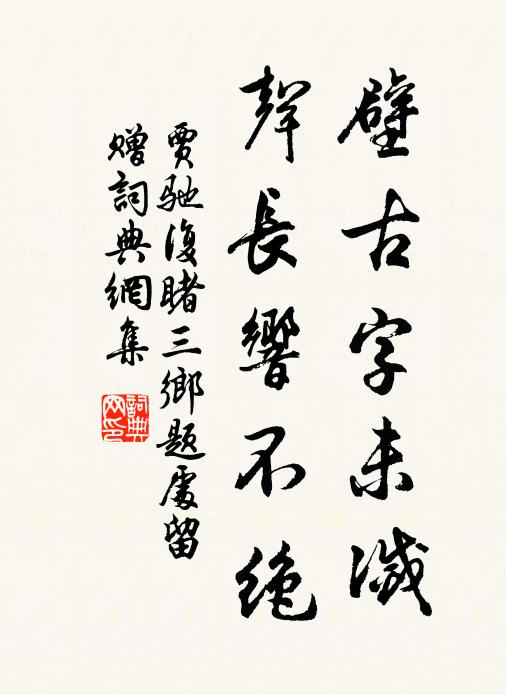 壁古字未滅
聲長響不絕
賈馳復睹三鄉題處留
贈詞典網集
詞典
网印